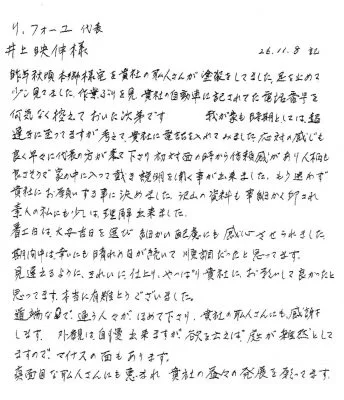 リ,フォーユ 代表
井上映伸様 26.11.8 記
昨年秋頃本郷様宅を貴社の職人さんが塗装をしてました。足を止めて
少し見てました。作業ぶりを見、貴社の自動車に記されてた電話番号を
何気なく控えておいた次第です 我が家も時期としては、超
過ぎに至ってますが考えて、貴社に電話を入れてみました。応対の感じも
良く早々に代表の方が来て下さり初対面の時から信頼感があり人柄も
良さそうで家の中に入って戴き説明を聞く事が出来ました。もう迷わず
貴社にお願いする事に決めました。沢山の資料も事細かく印され
素人の私にも少しは理解出来ました。
着工日は、大安吉日を選び細かい配慮にも感心させられました。
期間中は幸いにも晴れの日が続いて順調だったと思ってます。
見違えるように、きれいに仕上り、やっぱり貴社に、お願いして良かったと
思ってます。本当に有難とうございました。
道端なので、通う人々が、ほめて下さり、貴社の職人さんにも感謝を
します。外観は自慢出来ますが、欲を云えば庭が雑然として
ますので、マイナスの面もあります。
真面目な職人さんにも恵まれ貴社の益々の発展を祈ってます。